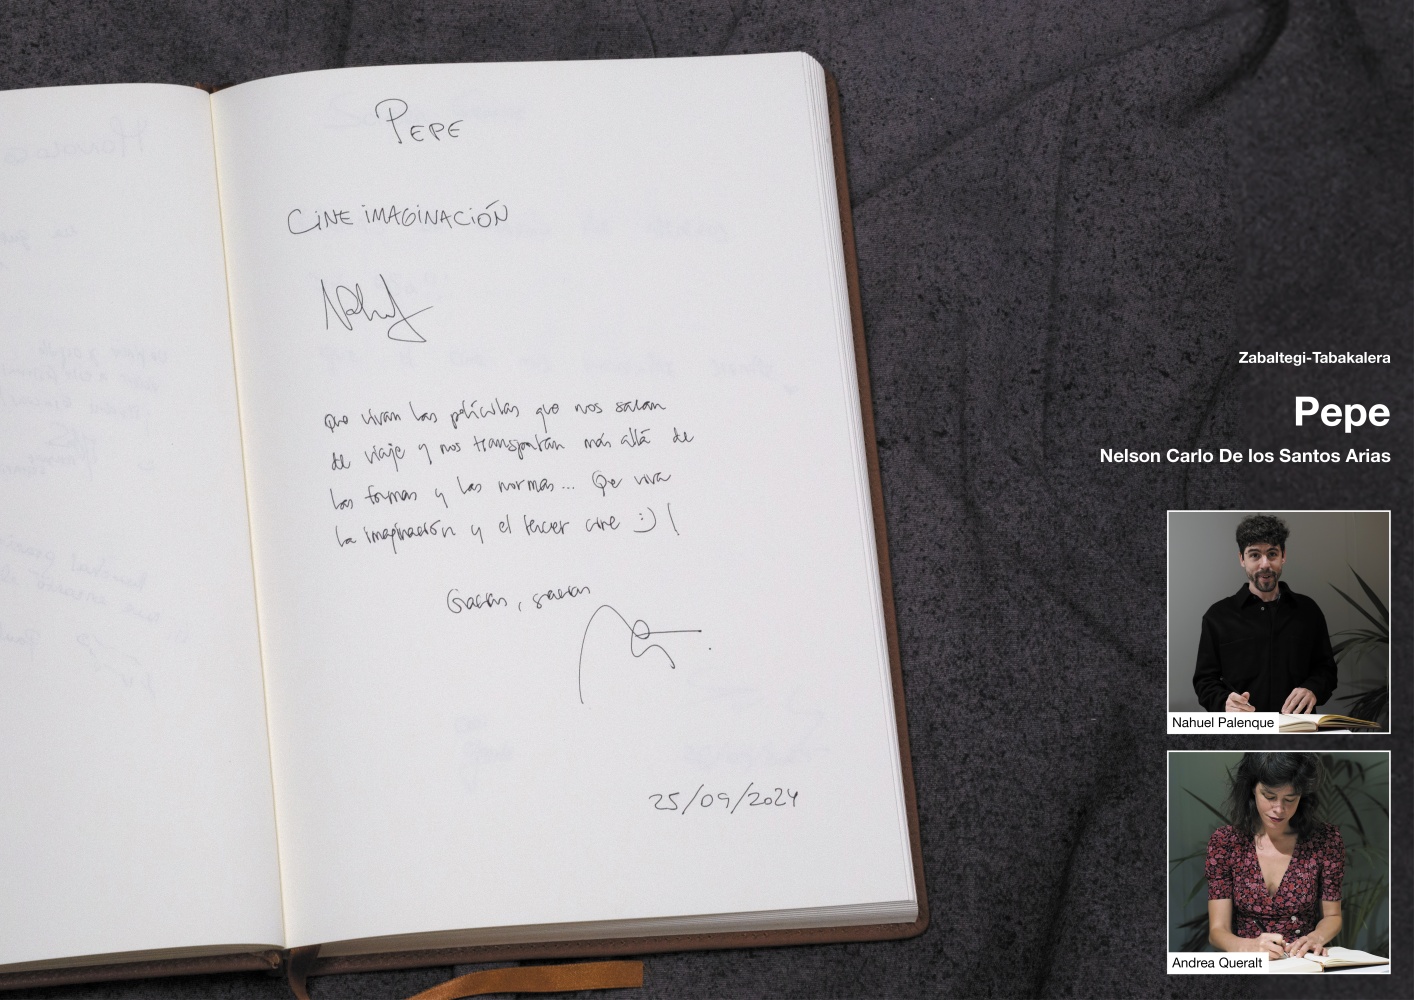 PEPE
CINE IMAGINACIÓN
Nahuel
Que vivan las películas que nos sacan
de viaje y nos transportan más allá de
las formas y las normas... Que viva
la imaginación y el tercer cine :) !
Gracias,
25/09/2024
Zabaltegi-Tabakalera
Pepe
Nelson Carlo De los Santos Arias
Nahuel Palenque
Andrea Queralt